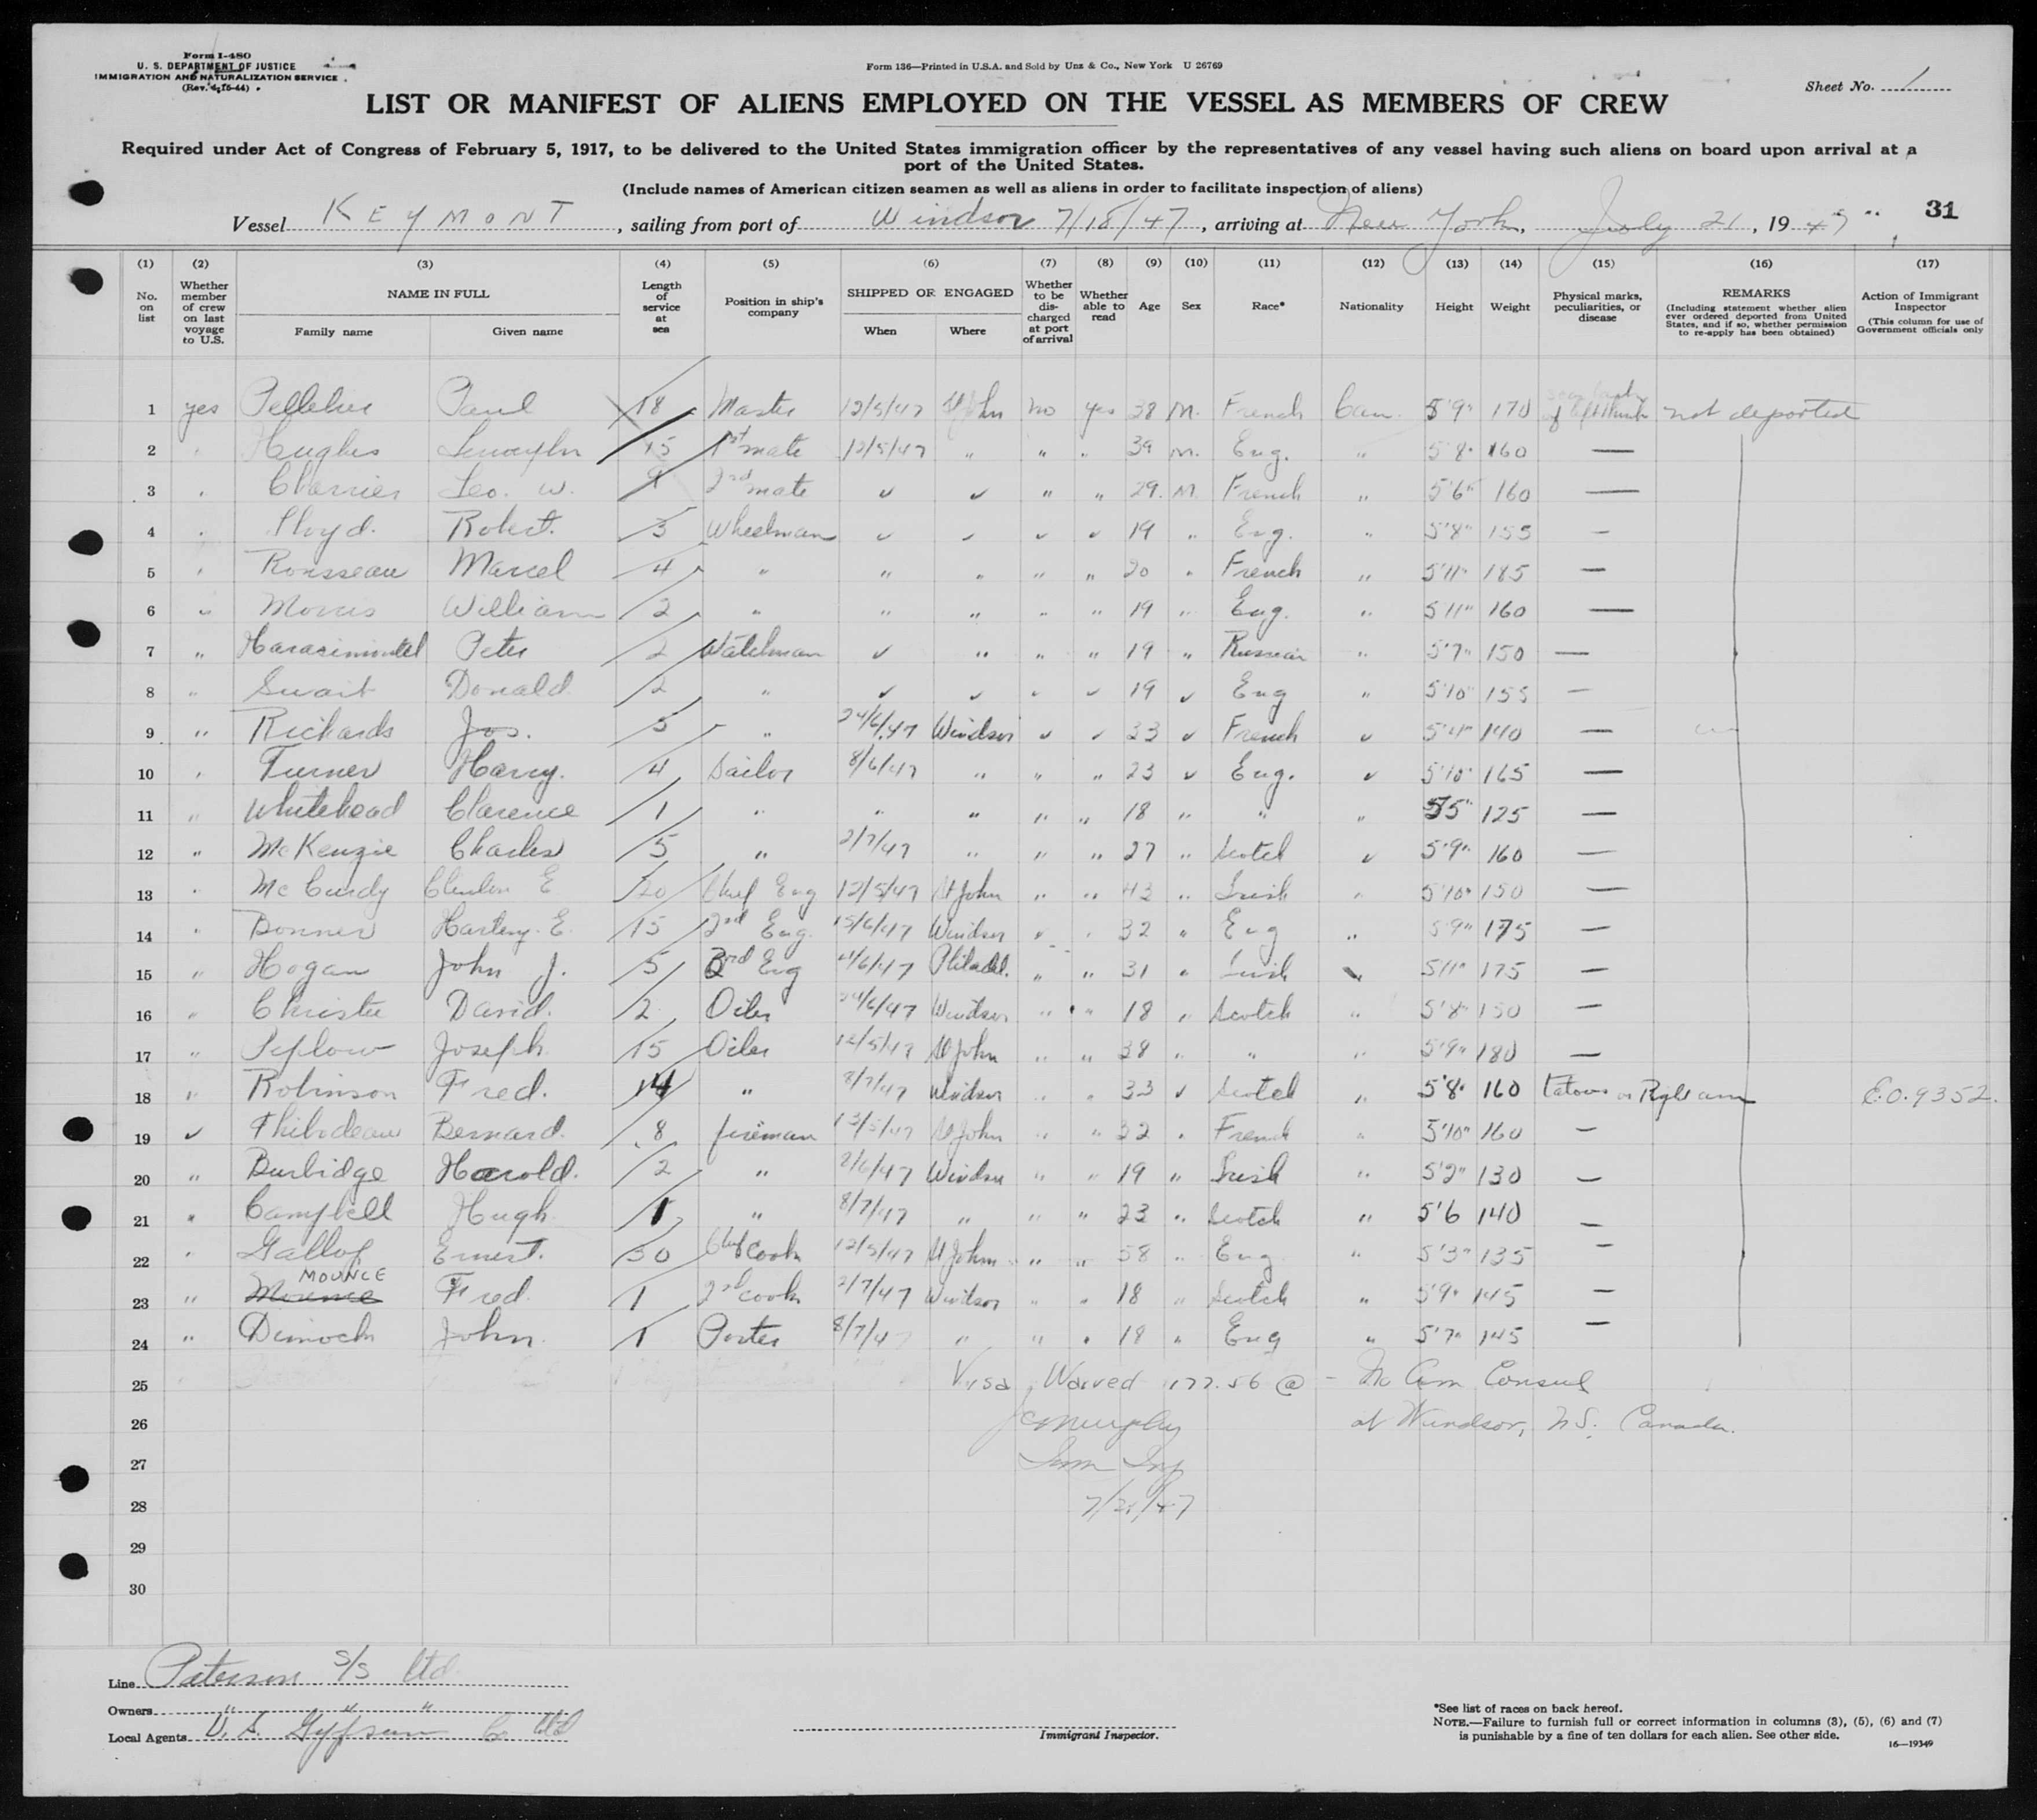 Form I-480
U. S. DEPARTMENT OF JUSTICE
IMMIGRATION AND NATURALIZATION SERVICE
(Rev. 4-15-44)
Form 136—Printed in U.S.A. and Sold by Unz & Co., New York U 26769
Sheet No. 1
LIST OR MANIFEST OF ALIENS EMPLOYED ON THE VESSEL AS MEMBERS OF CREW
Required under Act of Congress of February 5, 1917, to be delivered to the United States immigration officer by the representatives of any vessel having such aliens on board upon arrival at a
port of the United States.
(Include names of American citizen seamen as well as aliens in order to facilitate inspection of aliens)
Vessel KEYMONT, sailing from port of Windsor 7/18/47, arriving at New York, July 21, 1947
31
(1) (2) (3) (4) (5) (6) (7) (8) (9) (10) (11) (12) (13) (14) (15) (16) (17)
No. on list
Whether member of crew on last voyage to U.S.
NAME IN FULL
Family name Given name
Length of service at sea
Position in ship's company
SHIPPED OR ENGAGED
When Where
Whether to be discharged at port of arrival
Whether able to read
Age
Sex
Race*
Nationality
Height
Weight
Physical marks, peculiarities, or disease
REMARKS
(Including statement whether alien ever ordered deported from United States, and if so, whether permission to re-apply has been obtained)
Action of Immigrant Inspector
(This column for use of Government officials only
1 yes Paul 18 Master 12/5/47 St John no yes 38 M. French Can. 5'9" 170 not deported
2 " Hughes 15 1st mate 12/5/47 " " " 39 M. Eng. " 5'8" 160 —
3 " Charrier Leo. W. 2nd mate ✓ ✓ " " 29. M. French " 5'6" 160 —
4 " Lloyd. Robert. 3 Wheelman ✓ ✓ ✓ ✓ 19 " Eng. " 5'8" 155 —
5 " Rousseau Marcel 4 " " " " " 20 " French " 5'11" 185 —
6 " Morris William 2 " " " " " 19 " Eng. " 5'11" 160 —
7 " Peter 2 Watchman ✓ " " " 19 " Russian " 5'7" 150 —
8 " Donald 2 " ✓ ✓ ✓ ✓ 19 ✓ Eng " 5'10" 155 —
9 " Richards Jos. 5 " 24/6/47 Windsor ✓ ✓ 33 ✓ French ✓ 5'4" 140 —
10 " Turner Harry. 4 Sailor 8/6/47 " " " 23 ✓ Eng. ✓ 5'10" 165 —
11 " Whitehead Clarence 1 " " " " " 18 " " " 5'5" 125 —
12 " McKenzie Charles 5 " 2/7/47 " " " 27 " Scotch ✓ 5'9" 160 —
13 " McCurdy E 20 Chief Eng 12/5/47 St John " " 43 " Irish " 5'10" 150 —
14 " Bonner Hartley. E. 15 2nd Eng. 15/6/47 Windsor ✓ " 32 " Eng " 5'9" 175 —
15 " Hogan John J. 5 3rd Eng Philadel. " " 31 " Irish " 5'11" 175 —
16 " Christie David. 2 Oiler 24/6/47 Windsor " " 18 " Scotch " 5'8" 150 —
17 " Peplow Joseph 15 Oiler 12/5/47 St John " " 38 " " " 5'9" 180 —
18 " Robinson Fred. 14 " 8/7/47 Windsor " " 33 ✓ Scotch " 5'8" 160 Tatoos on Right arm E.O. 9352.
19 ✓ Thibodeau Bernard. 8 fireman 13/5/47 St John " " 22 " French " 5'10" 160 —
20 " Burbidge Harold. 2 " 8/6/47 Windsor " " 19 " Irish " 5'2" 130 —
21 " Campbell Hugh 1 " 8/7/47 " " " 23 " Scotch " 5'6 140 —
22 " Gallop Ernest. 30 Chief Cook 12/5/47 St John " " 58 " Eng " 5'3" 135 —
MOUNCE
23 " Fred. 1 2nd cook 2/7/47 Windsor " " 18 " Scotch " 5'9" 145 —
24 " Dimock John. 1 Porter 8/7/47 " " " 18 " Eng " 5'7" 145 —
25 Visa Waived 177.56 @ - Am Consul
26 JC Murphy at Windsor, N.S. Canada.
27 Imm Insp
28 7/21/47
29
30
Line Paterson S/S Ltd
Owners " " "
Local Agents U.S. Gypsum Co Ltd
Immigrant Inspector.
*See list of races on back hereof.
NOTE.—Failure to furnish full or correct information in columns (3), (5), (6) and (7)
is punishable by a fine of ten dollars for each alien. See other side.
16—19349